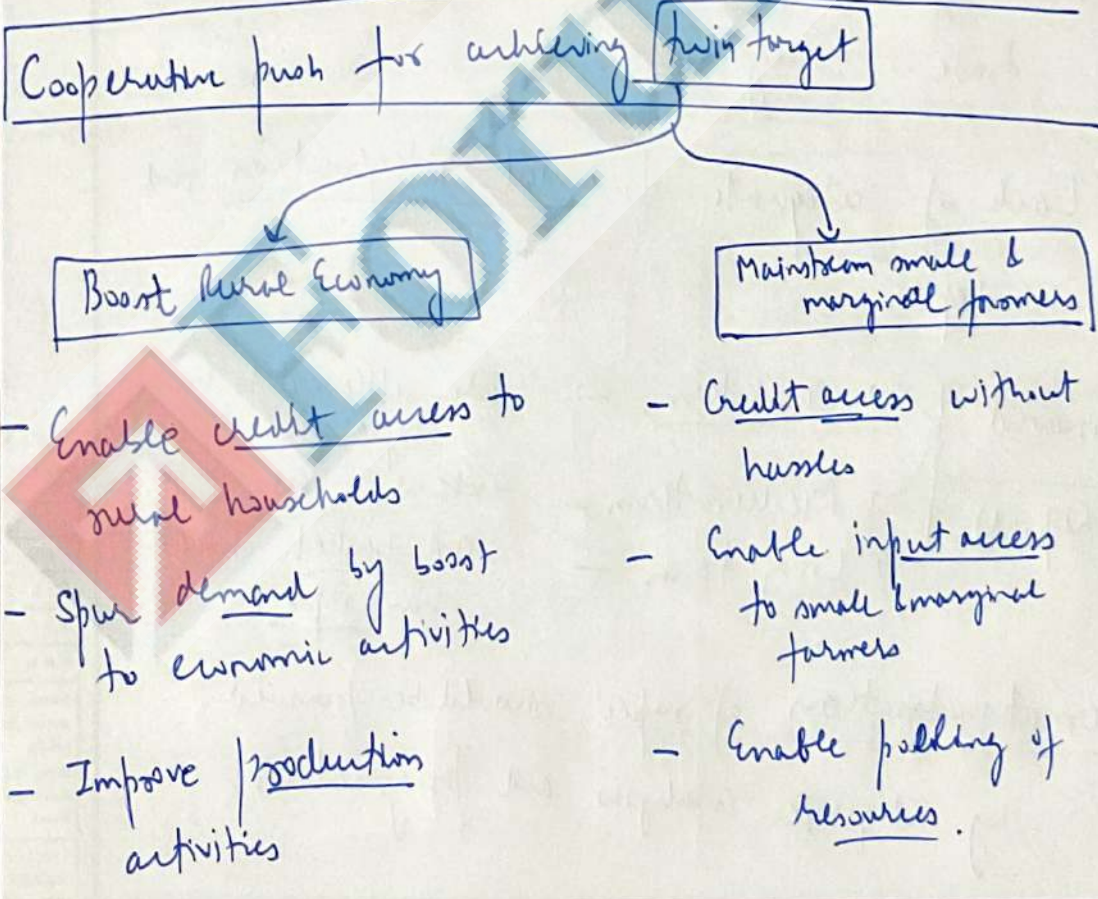 Cooperative push for achieving twin target
Boost Rural Economy
- Enable credit access to
rural households
- Spur demand by boost
to economic activities
- Improve production
activities
Mainstream small &
marginal farmers
- Credit access without
hassles
- Enable input access
to small & marginal
farmers
- Enable pooling of
resources.